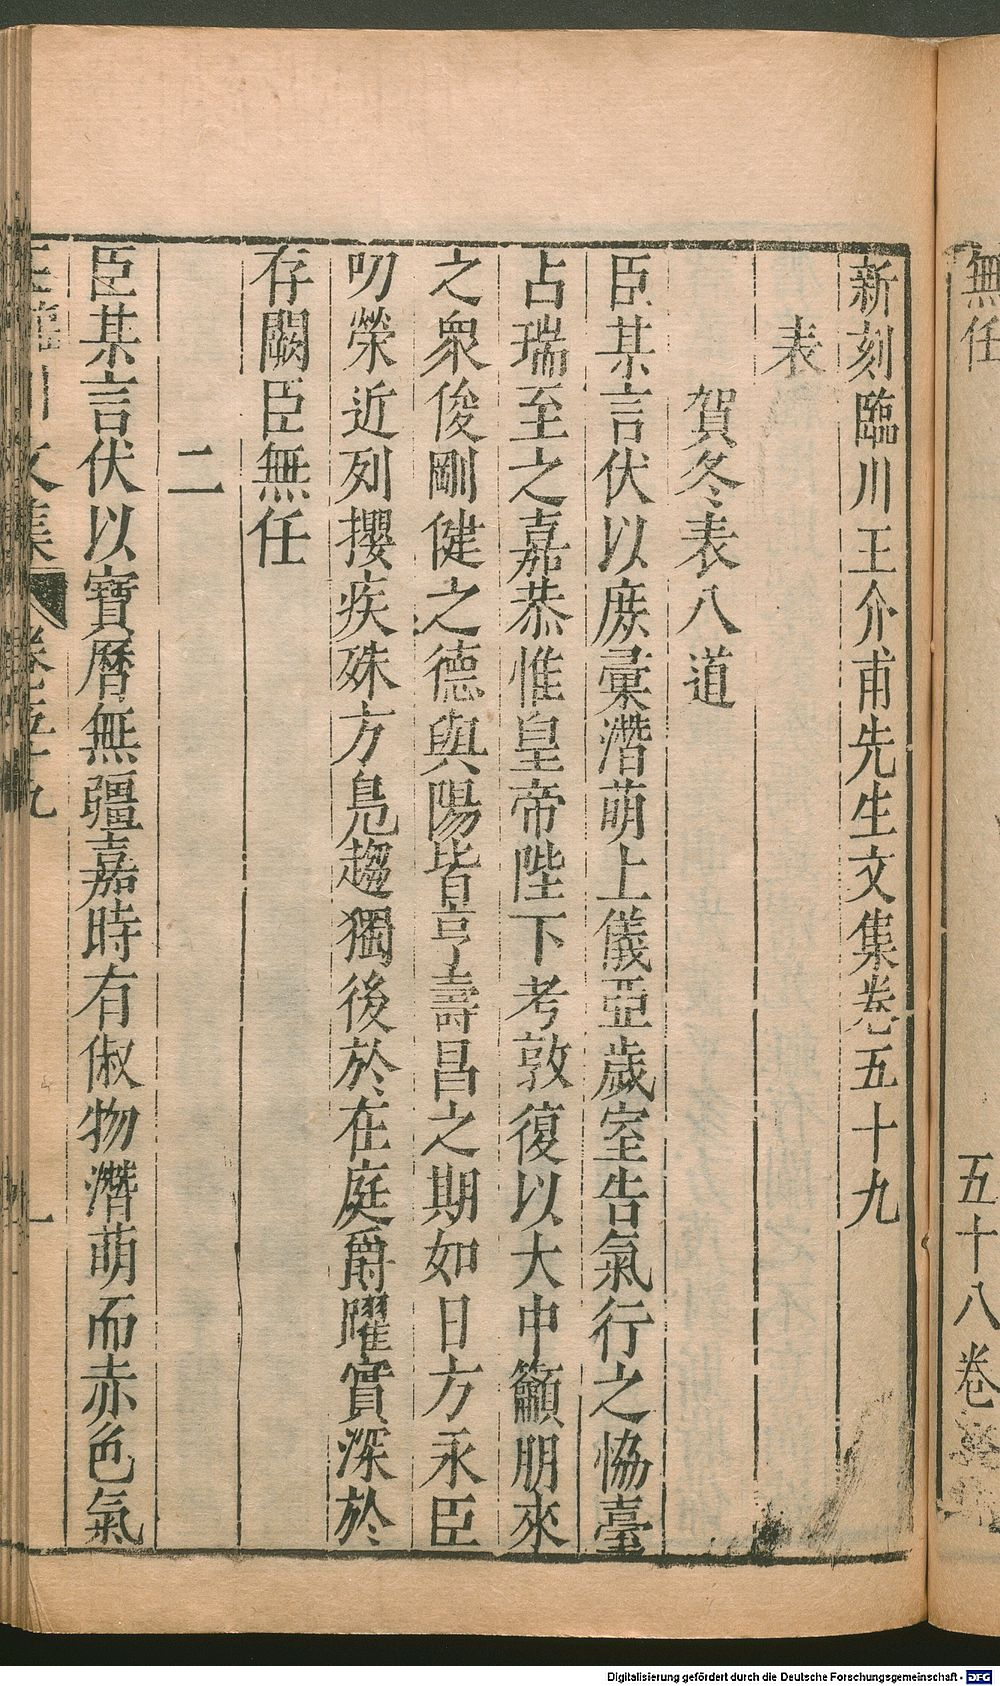 無任
五十八卷
新刻臨川王介甫先生文集卷五十九
表
賀冬表八道
臣某言伏以庶彙潛萌上儀亞歲室告氣行之恊臺
占瑞至之嘉恭惟皇帝陛下考敦復以大中籲朋來
之衆俊剛健之德與陽皆亨壽昌之期如日方永臣
叨榮近列攖疾殊方鳧趨獨後於在庭爵躍實深於
存闕臣無任
二
臣某言伏以寶曆無疆嘉時有俶物潛萌而赤色氣
王臨川文集 卷五十九 一
Digitalisierung gefördert durch die Deutsche Forschungsgemeinschaft - DFG